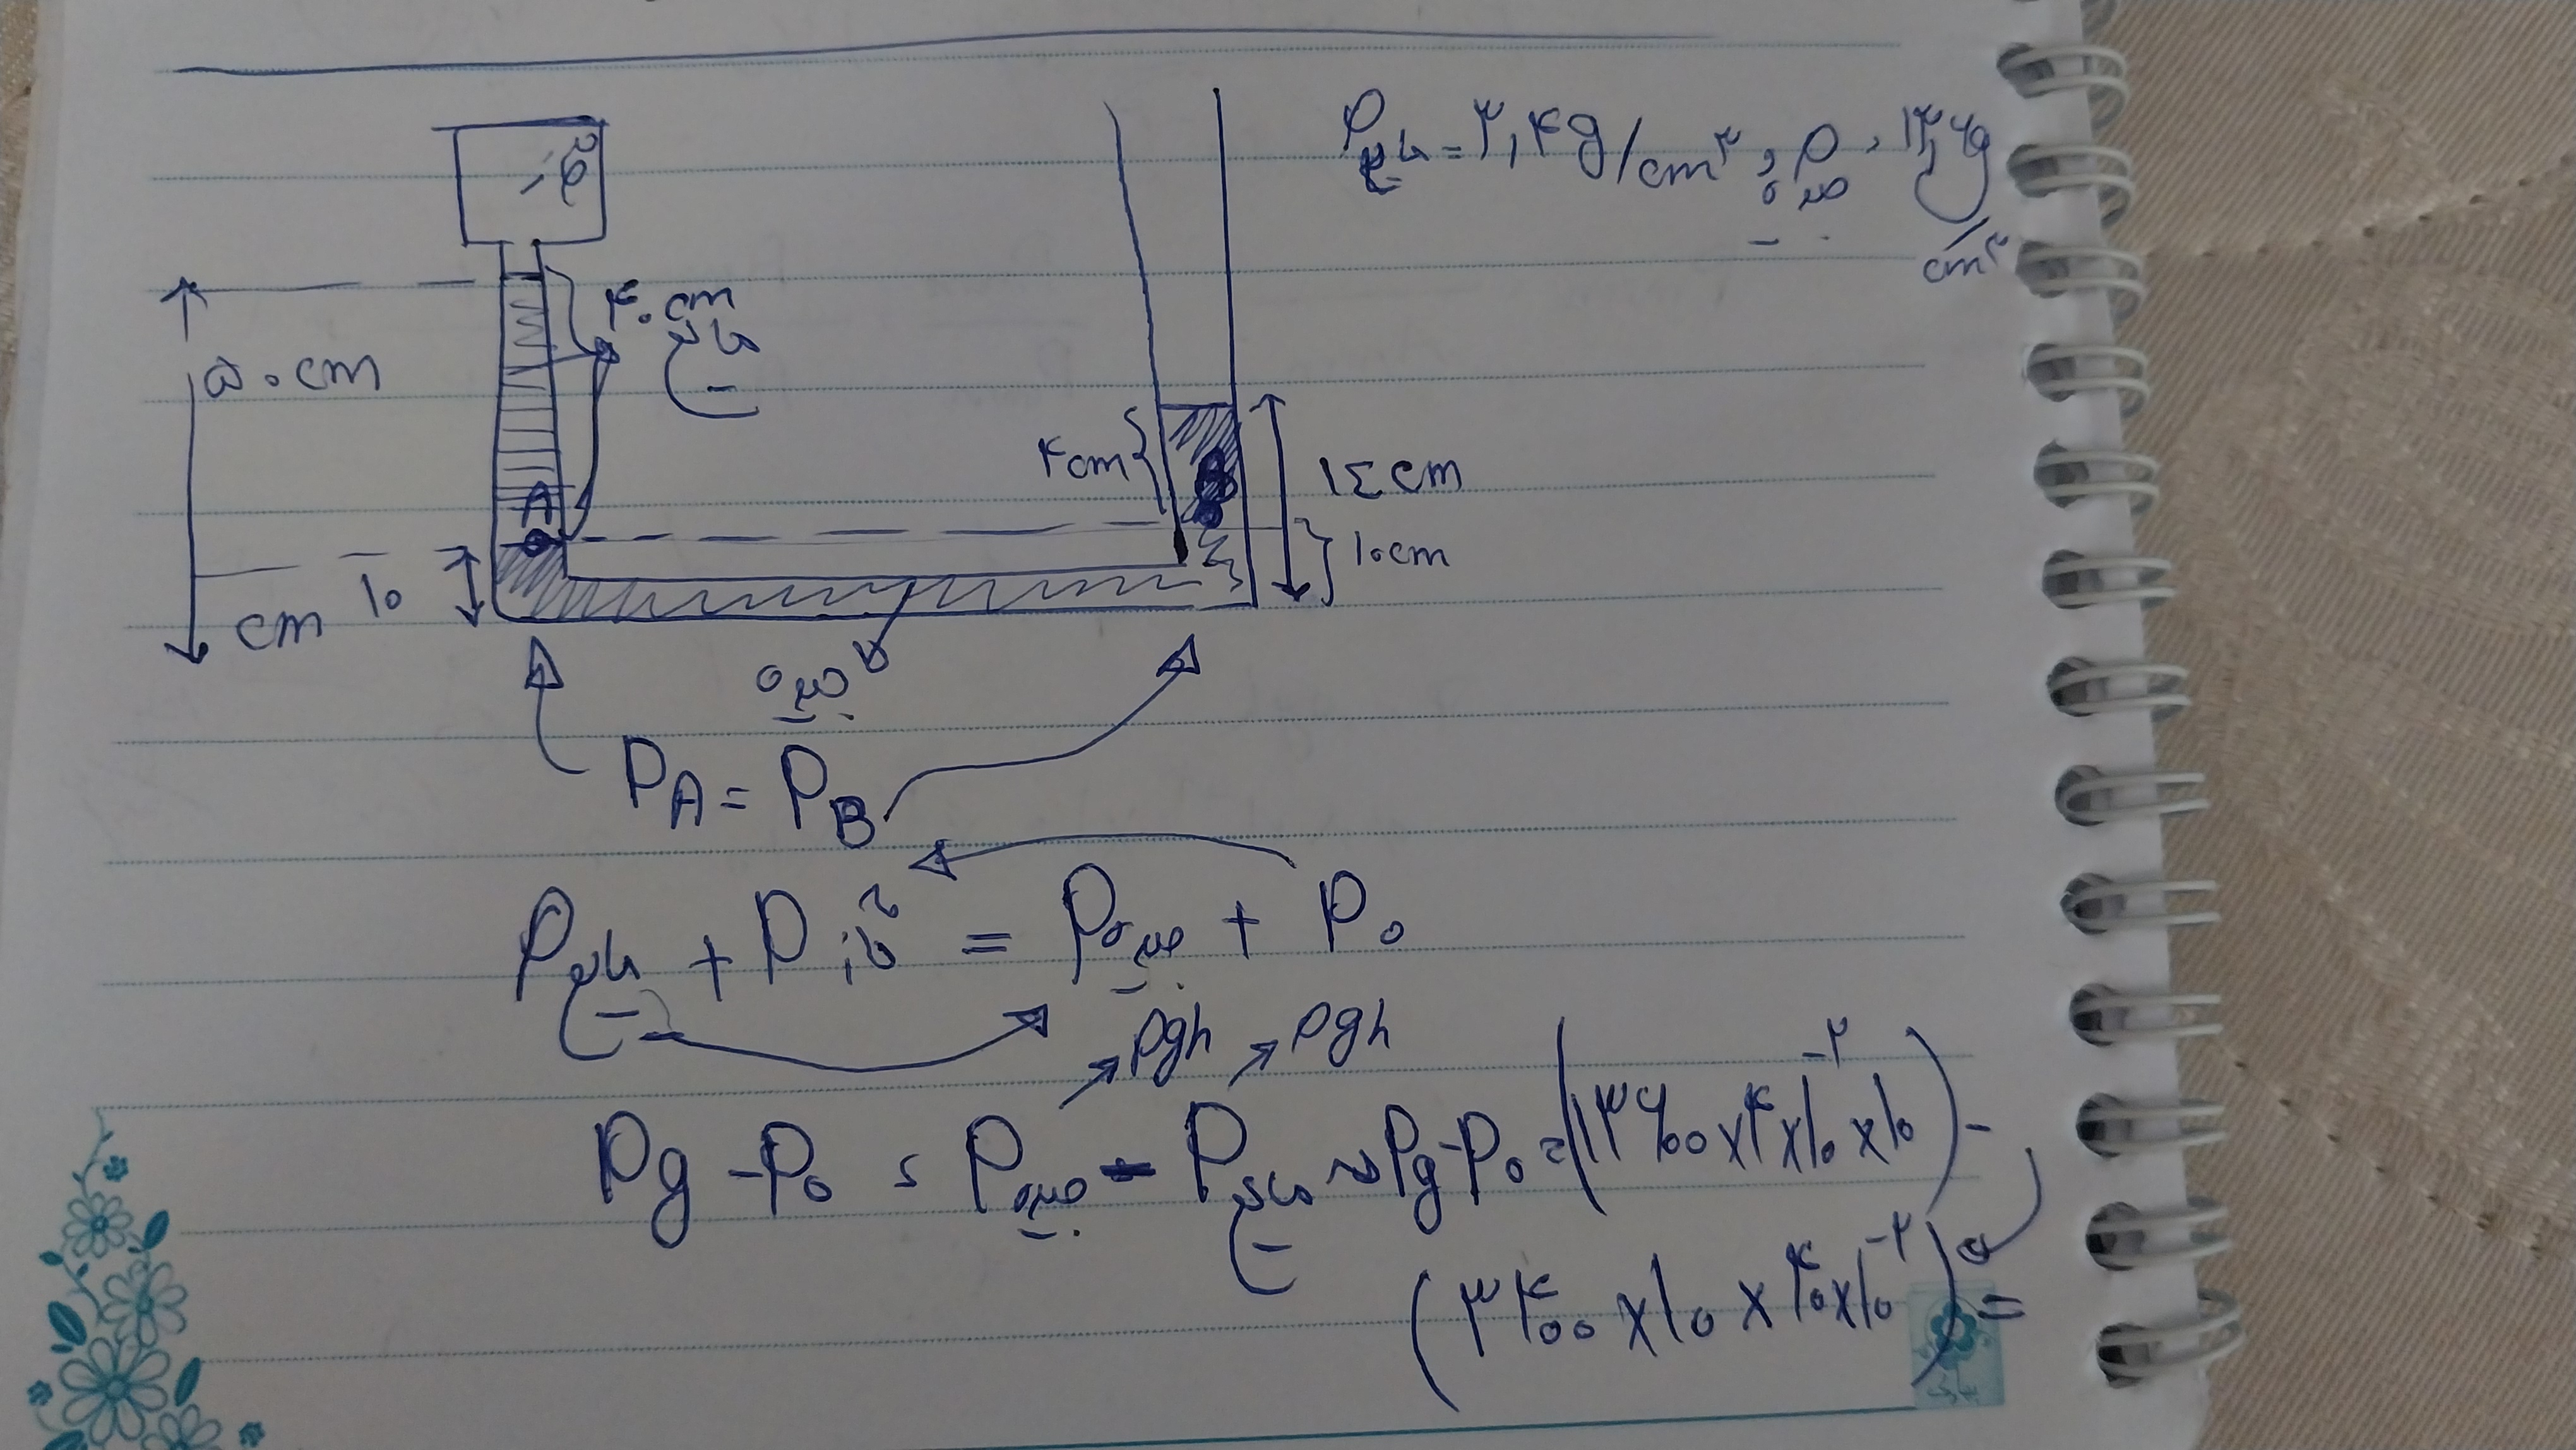 ρمایع = ۳,۴g/cm³ , ρجیوه , ۱۳,۶g/cm³
گاز
۴۰cm
مایع
۵۰cm
A
۴cm
B
۱٤cm
۱۰cm
cm ۱۰
جیوه
PA = PB
Pمایع + Pگاز = Pجیوه + P۰
ρgh ρgh
Pg - P۰ = Pجیوه - Pمایع ⇒ Pg - P۰ = (۱۳۶۰۰ × ۴ × ۱۰ × ۱۰⁻²) -
(۳۴۰۰ × ۱۰ × ۴۰ × ۱۰⁻²) =